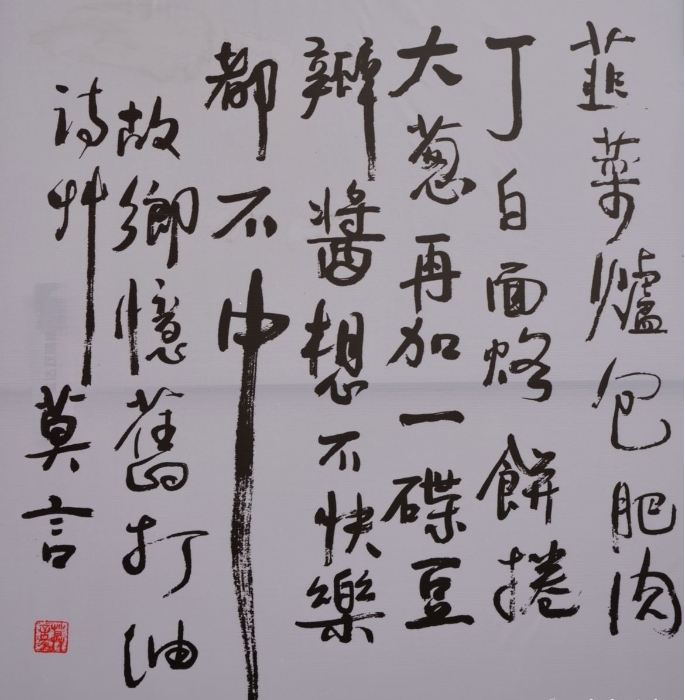 韭菜爐包肥肉
丁白面烙餅捲
大蔥再加一碟豆
瓣醬想不快樂
都不中
故鄉憶舊打油
詩艸莫言